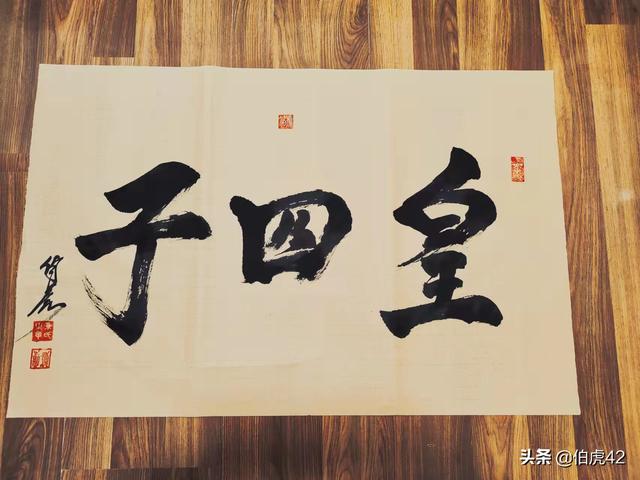 皇四子
伯虎
头条 @伯虎42